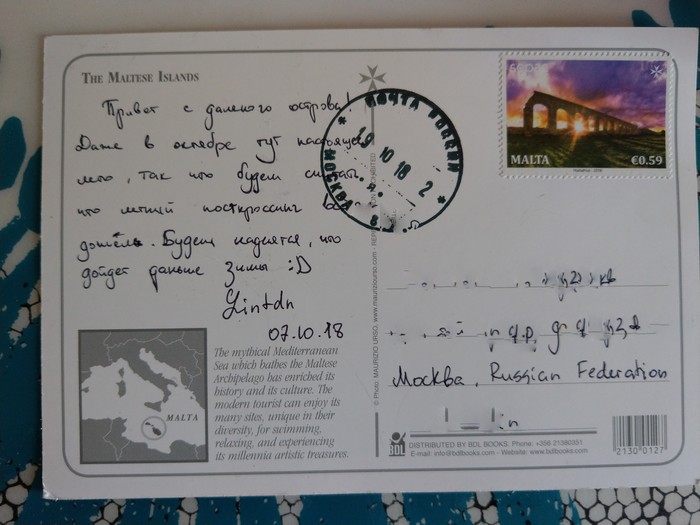 THE MALTESE ISLANDS
Привет с далекого острова!
Даже в октябре тут настоящее
лето, так что будем считать
что летний посткроссинг
Будем надеятся, что
дойдет раньше зимы :D
07.10.18
MALTA
The mythical Mediterranean
Sea which bathes the Maltese
Archipelago has enriched its
history and its culture. The
modern tourist can enjoy its
many sites, unique in their
diversity, for swimming,
relaxing, and experiencing
its millennia artistic treasures.
ПОЧТА РОССИИ
19 10 18 2
МОСКВА
MALTA €0.59
© Photo: MAURIZIO URSO. www.mauriziourso.com - REPRODUCTION PROHIBITED
Москва, Russian Federation
BDL
DISTRIBUTED BY BDL BOOKS. Phone: +356 21380351
E-mail: info@bdlbooks.com - Website: www.bdlbooks.com
2130 0127